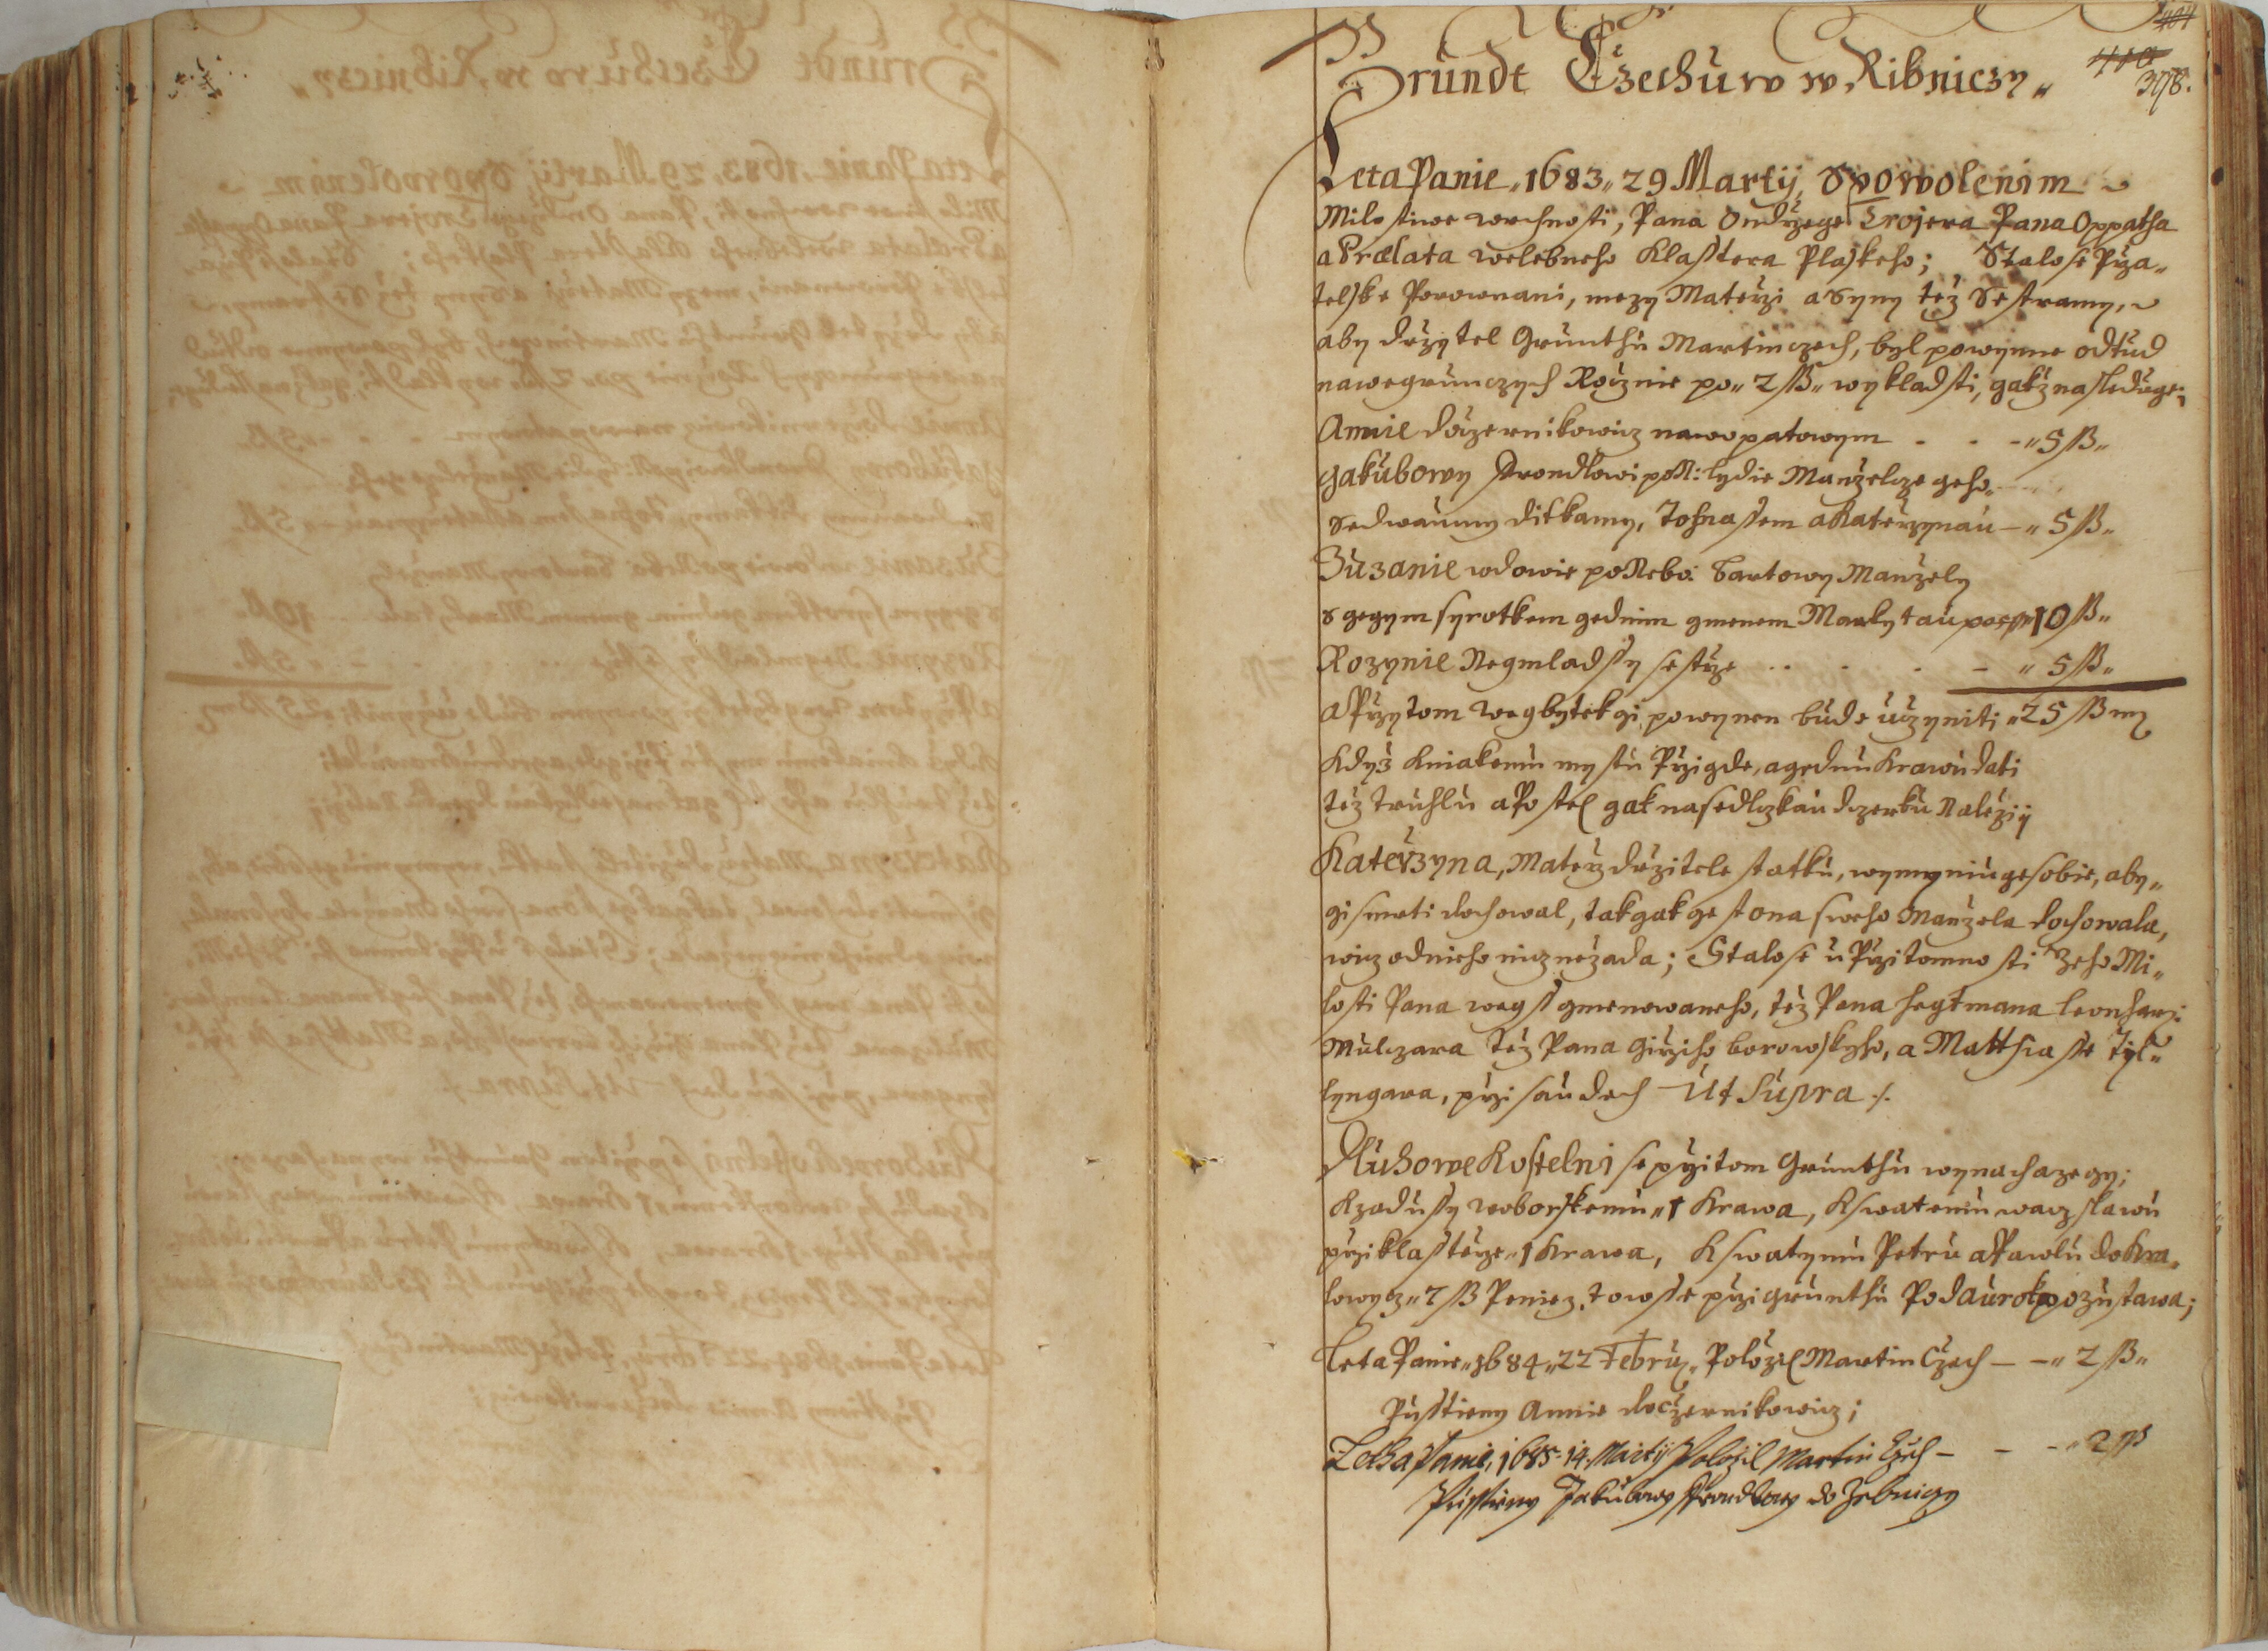 404
410
398.
Grundt Czechuw w Ribniczy„
Leta Panie„ 1683„ 29 Martij, S powolenim
Milostiwe wrchnosti, Pana Ondrzege Trojera Pana Oppatha
a Prælata welebneho Klasstera Plaskeho; Stalo se Prza„
telske Porownani, mezy Materzi a Syny téz Sestramy,
aby drzytel Grunthu Martin czech, byl powynne odtud
na wegrunczych Rocznie po„ 2 ß„ wykladsti, gakz nasleduge;
Annie do czernikowicz nawopatowym - - - „ 5 ß„
Gakubowy Strondlowi po N: lydie Manzelcze geho
se dwaumy ditkamy, Tohmassem a Katerzynau — „ 5 ß„
Zuzanie wdowie po Nebo: bartowy Manzely
s gegym syrotkem gednim gmenem Markytau 10 ß„
Rozynie Negmladssy sestrze - - - „ 5 ß„
a Przy tom wegbytek gi powynen bude ucziniti „ 25 ß
Kdyz k niakemu mystu Przigde, a gednu Krawu dati
téz truhlu a Postel gak na sedlczkau dczerku Nalézij
Katerzyna, Materz drzitele statku, wymyniuge sobie, aby„
gi smrti dochowal, tak gak gest ona sweho Manzela dochowala,
wicz od nieho nicz nezada; Stalo se u Przitomnosti Jeho Mi„
losti Pana wegss gmenowaneho, téz Pana hegtmana leonhar:
Mulczara téz Pana Girziho borowskyho, a Matthiasse Tyl„
lyngara, przi saudech Ut Supra ./.
Dluhowe Kostelni se przi tom Grunthu wynachazegy;
K zadussy woborskemu „ 1 Krawa, K swatemu waczslawu
przi klassterze „ 1 Krawa, K swatymu Petru a Pawlu do Kra„
lowycz „ 7 ß Peniez, to wsse przi grunthu Pod aurok pozustawa;
Leta Panie„ 1684„ 22 Febru„ Polozil Martin Czech — — „ 2 ß„
Pusstieny Annie do czernikowicz;
Letha Panie, 1685. 14. Martij Polozil Martin Czech — — - „ 2 ß
Pusstieny Jakubowy Strondlowy do Hebnicze